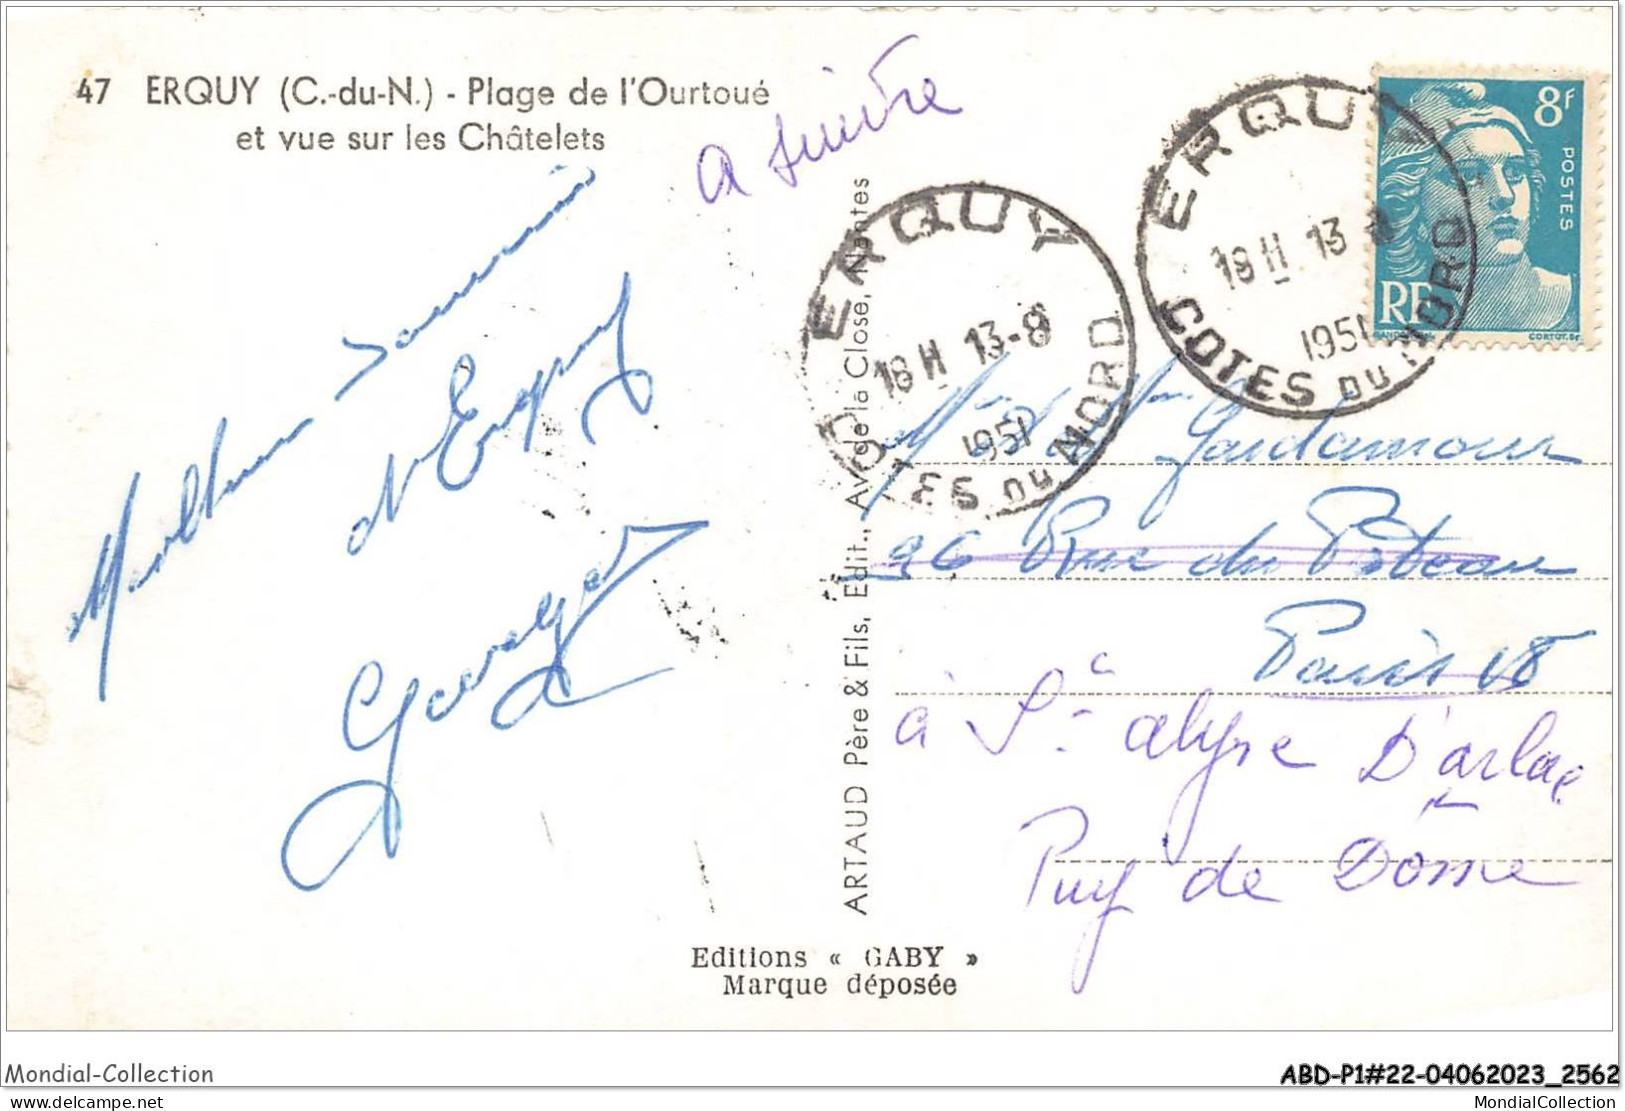 47 ERQUY (C.-du-N.) - Plage de l'Ourtoué
et vue sur les Châtelets
a suivre
Meilleurs Souvenirs
d'Erquy
ERQUY
18 H 13-8
1951
COTES DU NORD
ERQUY
18 H 13-8
1951
COTES DU NORD
8F
POSTES
RF
ARTAUD Père & Fils, Edit., Av. de la Close, Nantes
26 Rue du Poteau
Paris 18
à St alyre D'arlac
Puy de Dome
Editions « GABY »
Marque déposée
Mondial-Collection
ABD-P1#22-04062023_2562
www.delcampe.net
MondialCollection